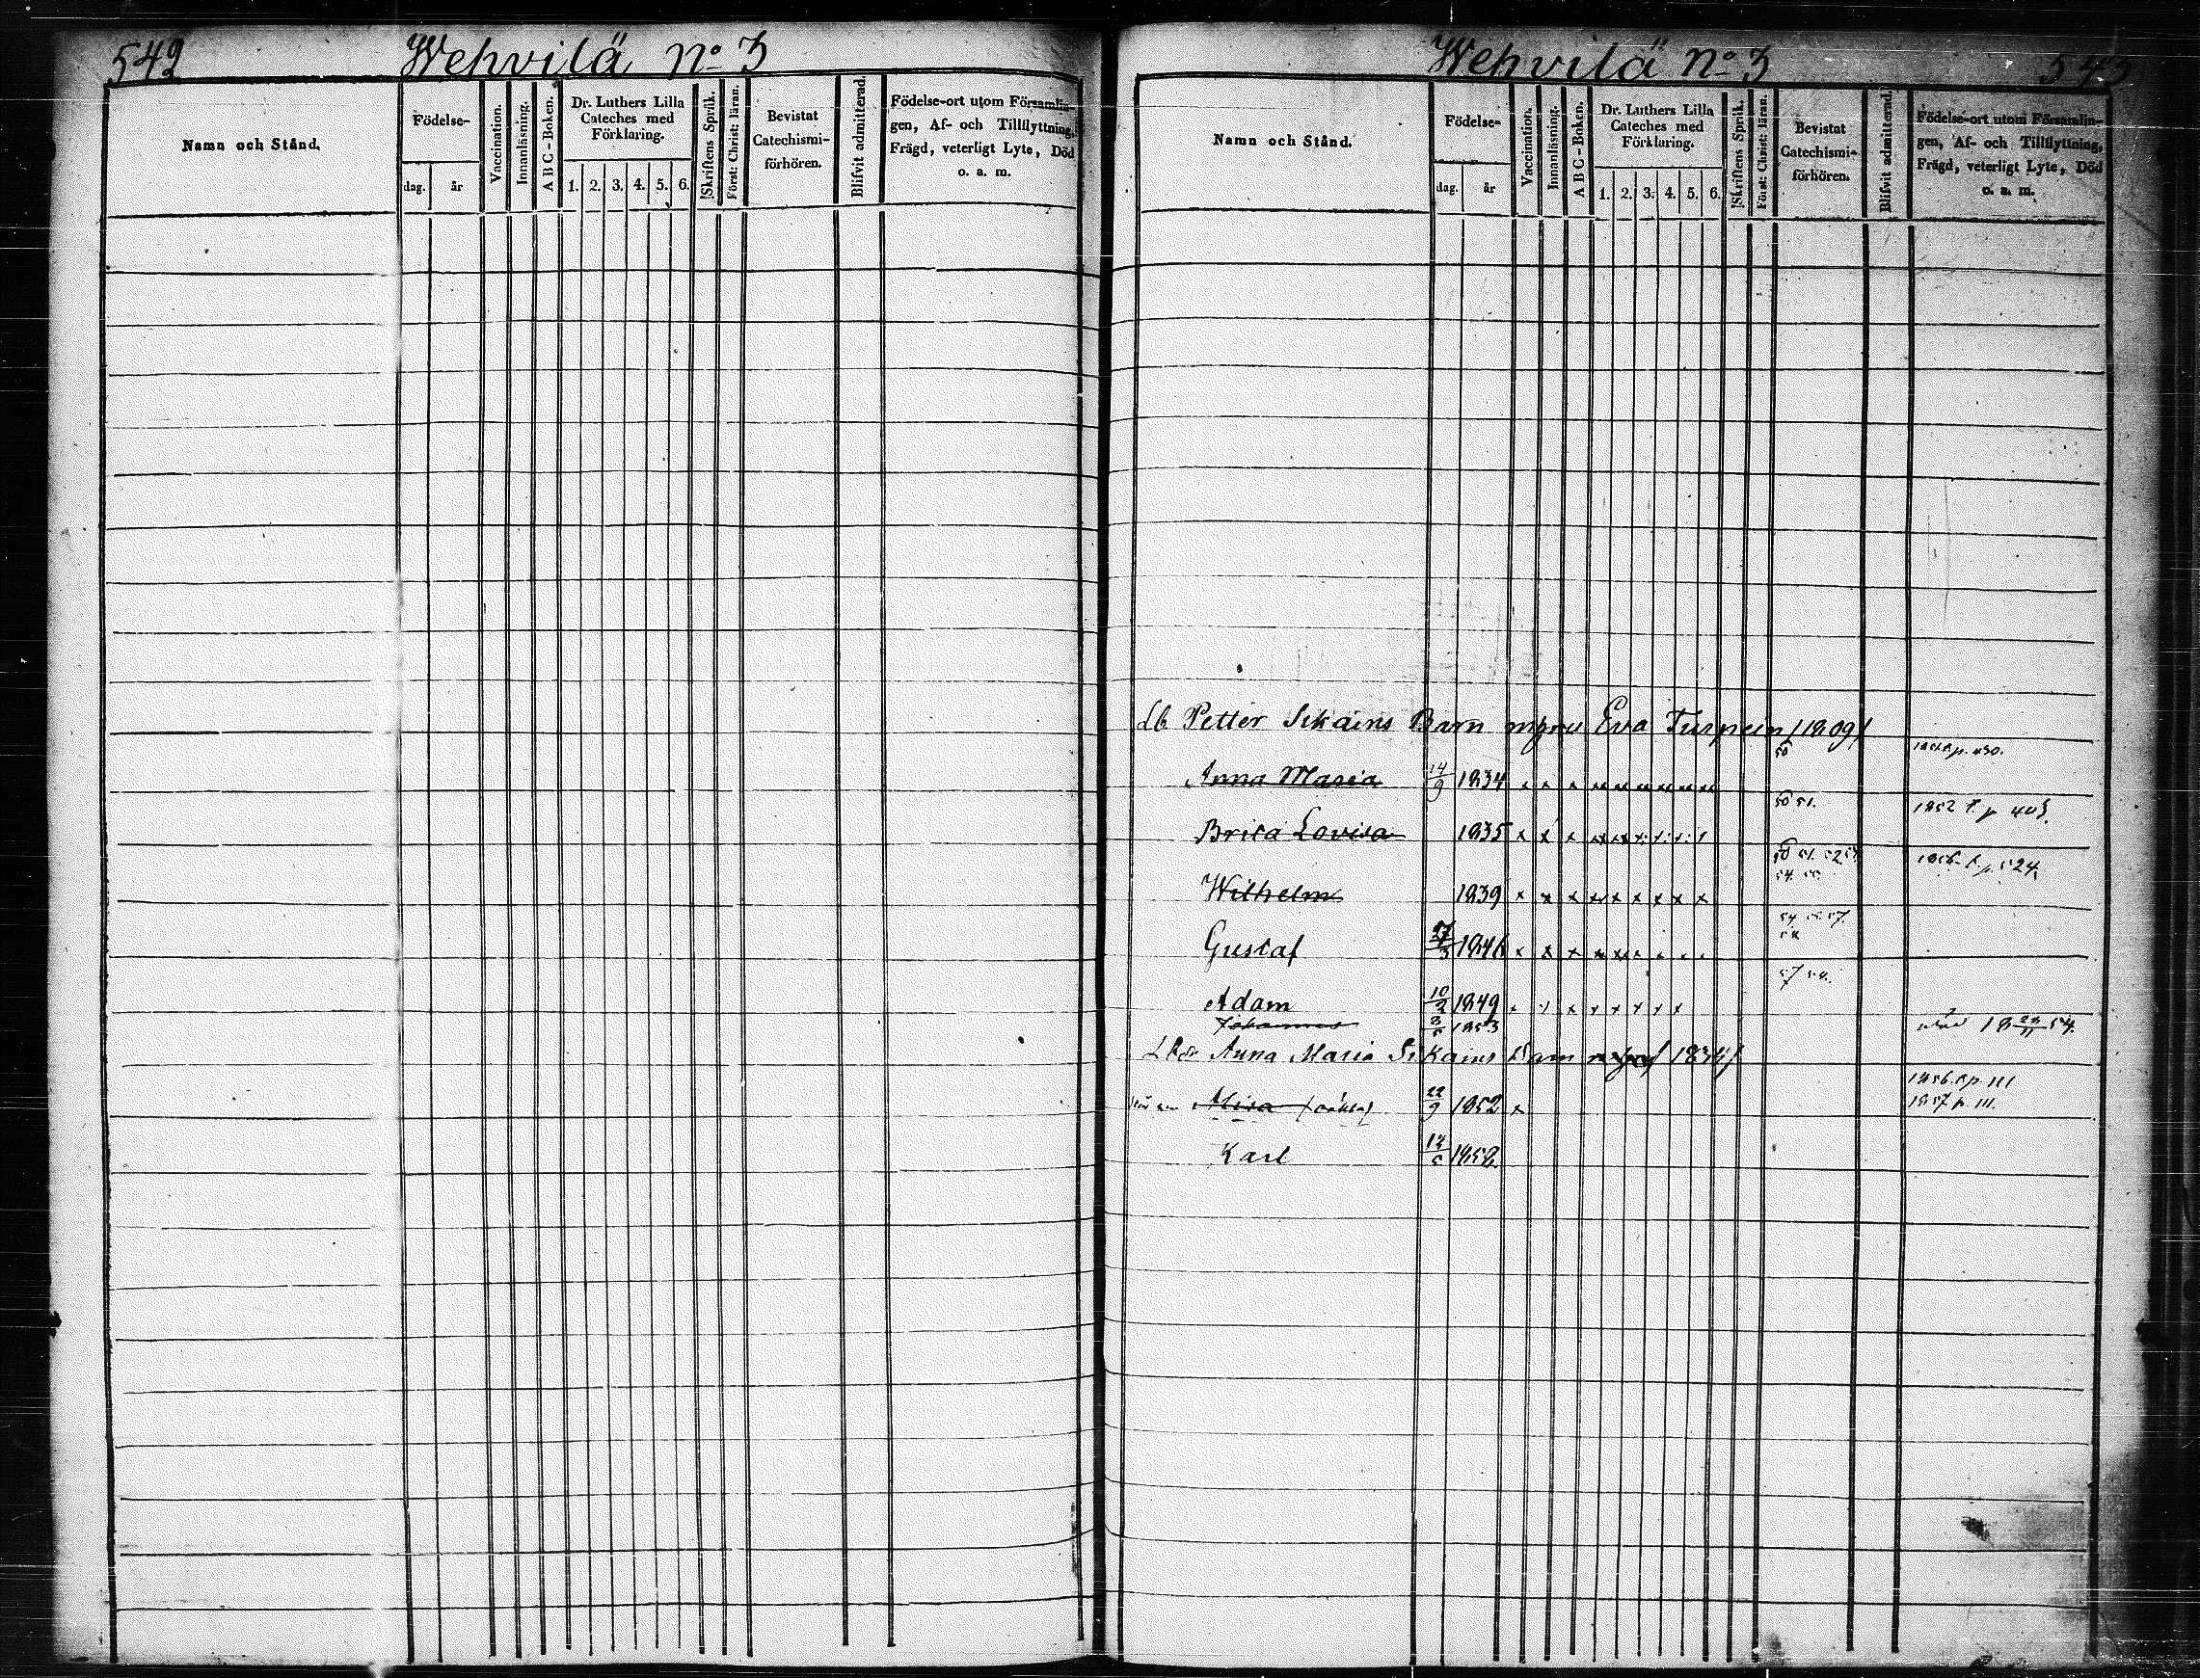 542 Wehvilä No 3
Namn och Stånd. Födelse- dag. år Vaccination. Innanläsning. A B C - Boken. Dr. Luthers Lilla Cateches med Förklaring. 1. 2. 3. 4. 5. 6. Skriftens Språk. Först: Christ: läran. Bevistat Catechismi-förhören. Blifvit admitterad. Födelse-ort utom Församlin-gen, Af- och Tillflyttning, Frägd, veterligt Lyte, Död o. a. m.
Wehvilä No 3 543
Namn och Stånd. Födelse- dag. år Vaccination. Innanläsning. A B C - Boken. Dr. Luthers Lilla Cateches med Förklaring. 1. 2. 3. 4. 5. 6. Skriftens Språk. Först: Christ: läran. Bevistat Catechismi-förhören. Blifvit admitterad. Födelse-ort utom Församlin-gen, Af- och Tillflyttning, Frägd, veterligt Lyte, Död o. a. m.
Lb Petter Sikains Barn Eva Turpein /1809/
Anna Maria 14/9 1834 x x x 50
Brita Lovisa 1835 x x x 50 51. 1852 f. p 403.
Wilhelm 1839 x x x x x x x x 50 51. 52 53 54 55 1856 f. p. 524.
Gustaf 1846 x x x x 54 57.
Adam 10/2 1849 x x x x x x 57 58.
Johannes 3/5 1853 död 18 54.
Anna Maria Sikains Barn /1834/
Miina 22/9 1852 x 1856 p. 111 1857 p. 111.
Karl 14/5 1858